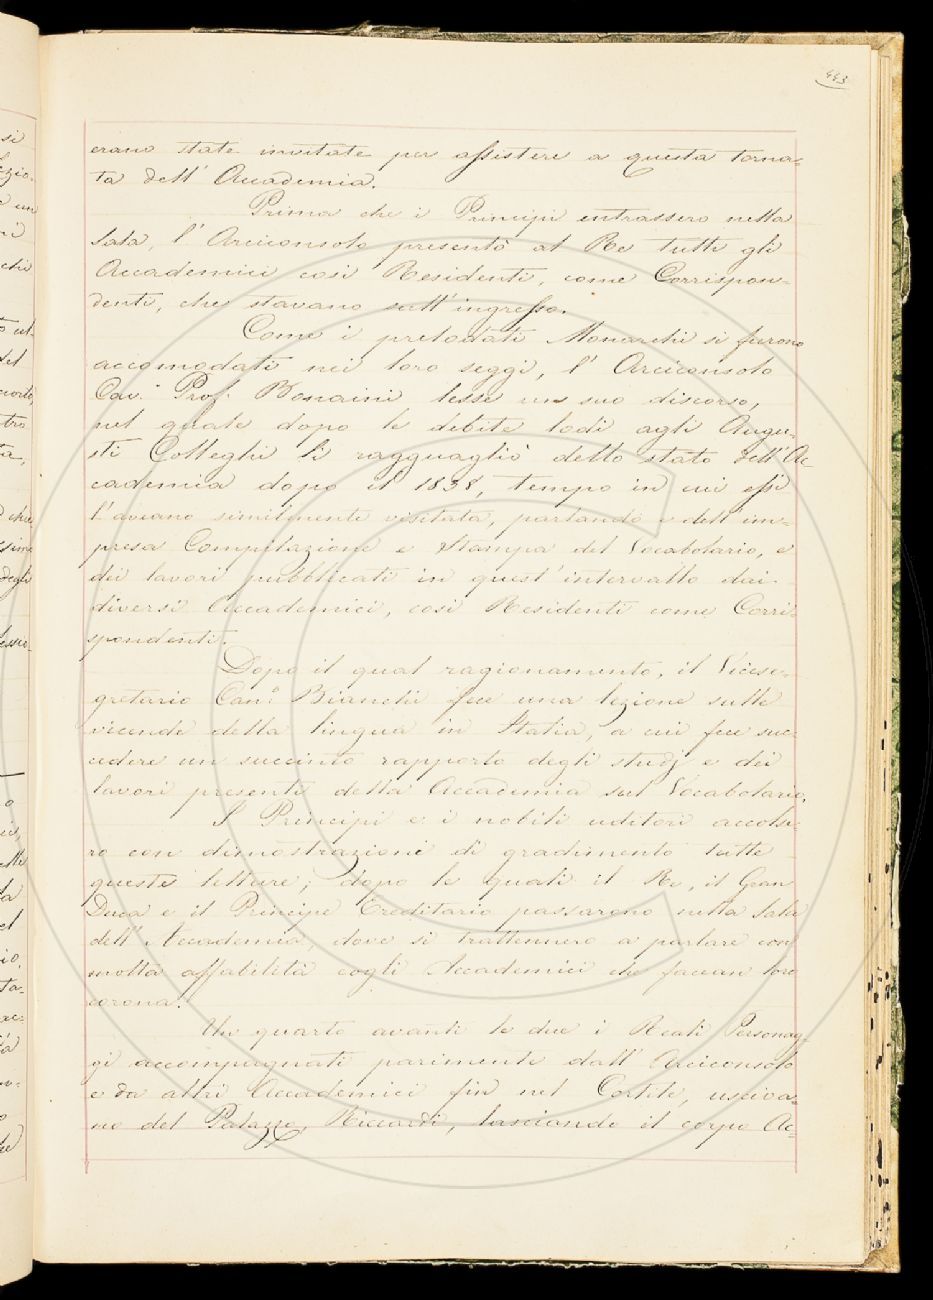 443
erano state invitate per assistere a questa torna=
ta dell' Accademia.
Prima che i Principi entrassero nella
Sala, l' Arciconsolo presentò al Re tutti gli
Accademici così Residenti, come Corrispon=
denti, che stavano sull' ingresso.
Come i prelodati Monarchi si furono
accomodati nei loro seggi, l' Arciconsolo
Cav. Prof. Bonaini lesse un suo discorso,
nel quale dopo le debite lodi agli Augu=
sti Colleghi li ragguagliò dello stato dell' Ac=
cademia dopo il 1838, tempo in cui essi
l' aveano similmente visitata, parlando e dell' im=
presa Compilazione e Stampa del Vocabolario, e
dei lavori pubblicati in quest' intervallo dai
diversi Accademici, così Residenti come Corri=
spondenti.
Dopo il qual ragionamento, il Vicese=
gretario Can.º Bianchi fece una lezione sulle
vicende della lingua in Italia, a cui fece suc=
cedere un succinto rapporto degli studj e dei
lavori presenti della Accademia sul Vocabolario.
I Principi e i nobili uditori accolse=
ro con dimostrazioni di gradimento tutte
queste letture; dopo le quali il Re, il Gran
Duca e il Principe Ereditario passarono nella Sala
dell' Accademia, dove si trattennero a parlare con
molta affabilità cogli Accademici che facean loro
corona.
Un quarto avanti le due i Reali Personag=
gi accompagnati parimente dall' Arciconsolo
e da altri Accademici fin nel Cortile, usciva=
no del Palazzo Riccardi, lasciando il corpo Ac=